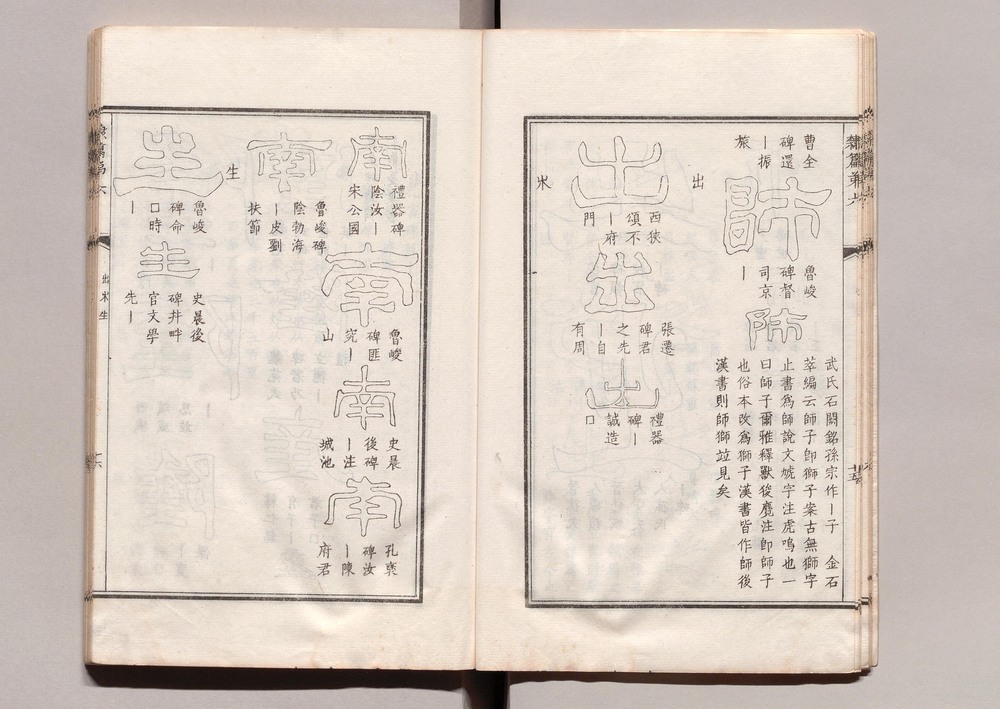 隸篇第六
曹全
碑還
ー振
旅
師
魯峻
碑督
司京
ー
師
武氏石闕銘孫宗作ー子　金石
萃編云師子卽獅子案古無獅字
止書爲師說文虓字注虎鳴也一
曰師子爾雅釋獸狻麑注卽師子
也俗本改爲獅子漢書皆作師後
漢書則師獅竝見矣
出
出
西狹
頌不
ー府
門
出
張遷
碑君
之先
ー自
有周
出
禮器
碑ー
誠造
口
南
禮器碑
陰汝ー
宋公國
南
魯峻
碑匪
究ー
山
南
史晨
後碑
ー注
城池
南
孔褒
碑汝
ー陳
府君
南
魯峻碑
陰勃海
ー皮劉
扶節
生
生
魯峻
碑命
口時
ー
生
史晨後
碑幷畔
官文學
先ー
出
生